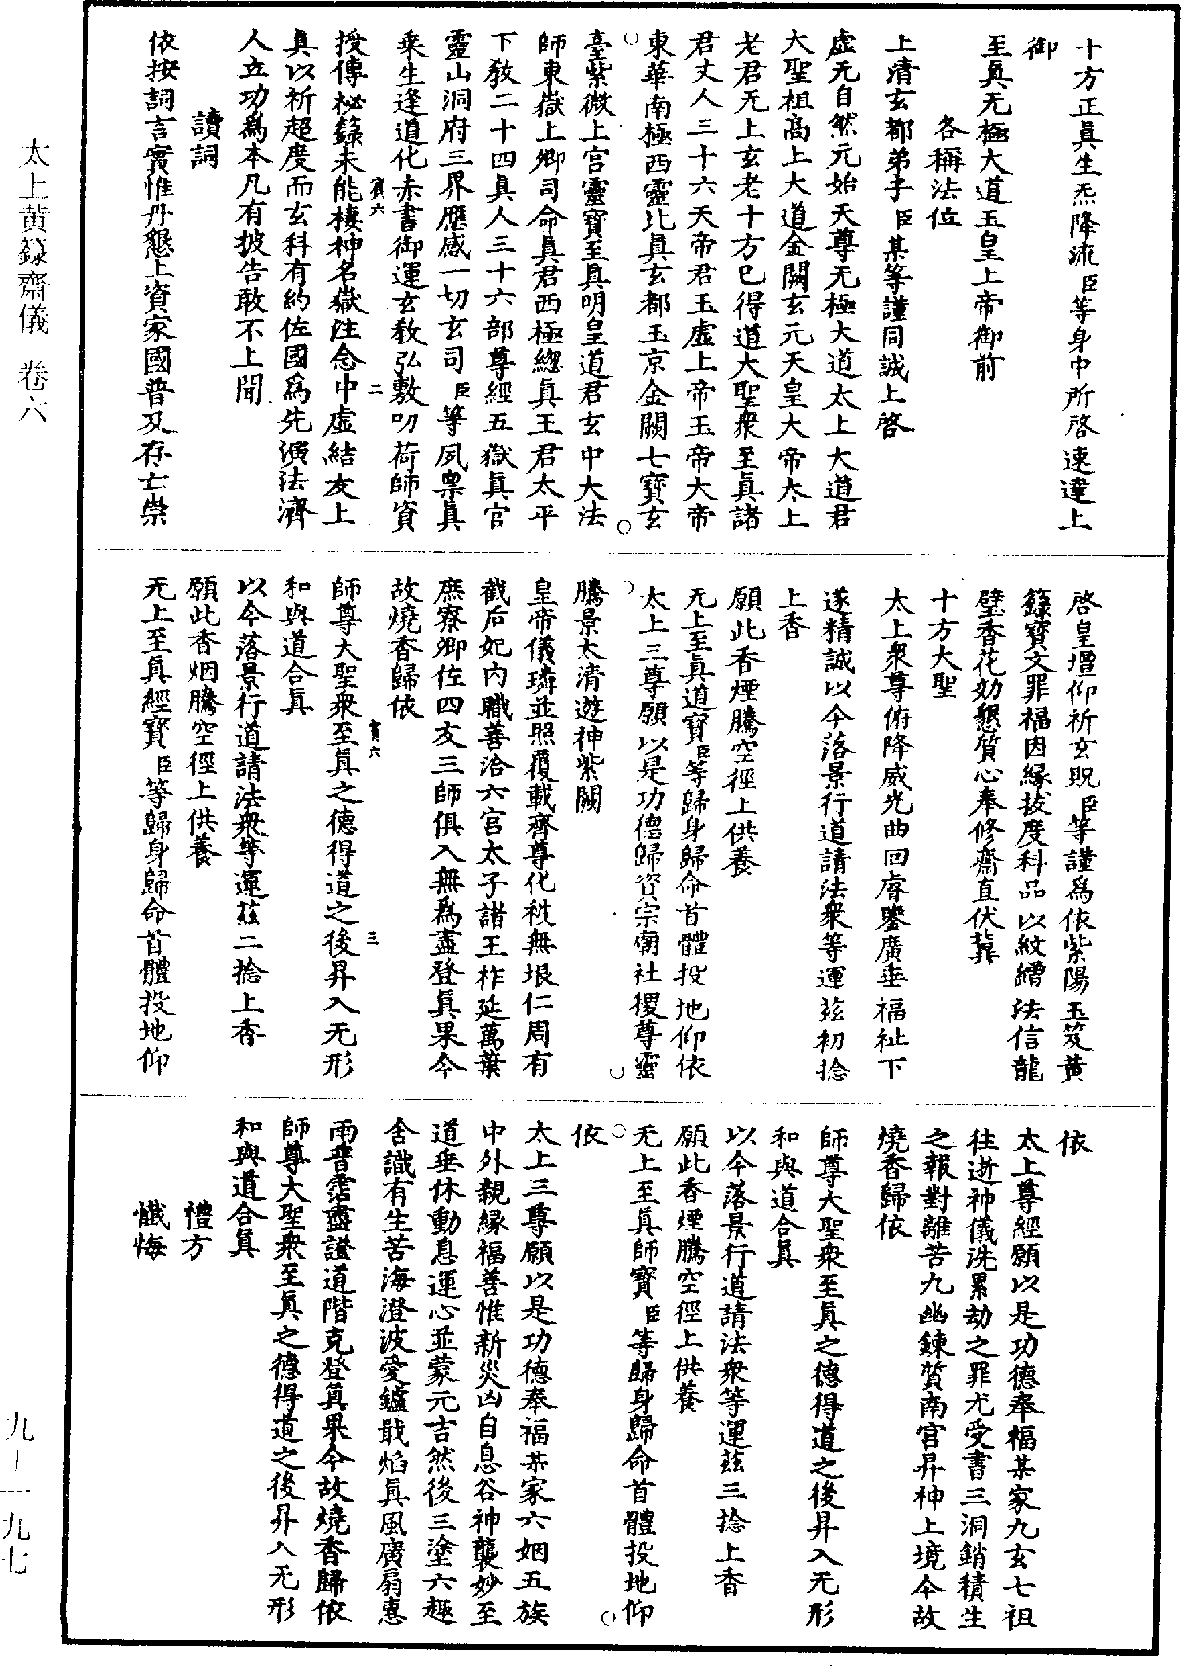 十方正真生炁降流臣等身中所啓速達上
御
至真无極大道玉皇上帝御前
各稱法位
上清玄都弟子臣某等謹同誠上啓
虛无自然元始天尊无極大道太上大道君
大聖祖高上大道金闕玄元天皇大帝太上
老君无上玄老十方已得道大聖衆至真諸
君丈人三十六天帝君玉虛上帝玉帝大帝
東華南極西靈北真玄都玉京金闕七寶玄
臺紫微上宮靈寶至真明皇道君玄中大法
師東嶽上卿司命真君西極緫真王君太平
下教二十四真人三十六部尊經五嶽真官
靈山洞府三界應感一切玄司臣等夙稟真
乘生逢道化赤書御運玄教弘敷叨荷師資
賓六 二
授傳祕籙未能棲神名嶽注念中虛結友上
真以祈超度而玄科有約佐國爲先演法濟
人立功爲本凡有披告敢不上聞
讀詞
依按詞言實惟丹懇上資家國普及存亡崇
啓皇壇仰祈玄貺臣等謹爲依紫陽玉笈黄
籙寶文罪福因緣拔度科品以紋繒法信龍
璧香花効懇質心奉修齋直伏冀
十方大聖
太上衆尊俯降威光曲回睿鑒廣垂福祉下
遂精誠以今落景行道請法衆等運茲初捻
上香
願此香煙騰空徑上供養
无上至真道寶臣等歸身歸命首體投地仰依
太上三尊願以是功德歸資宗廟社稷尊靈
騰景太清遊神紫闕
皇帝儀璘並照覆載齊尊化被無垠仁周有
截后妃内職善洽六宮太子諸王祚延萬葉
庶寮卿佐四友三師俱入無爲盡登真果今
故燒香歸依
賓六 三
師尊大聖衆至真之德得道之後昇入无形
和與道合真
以今落景行道請法衆等運茲二捻上香
願此香烟騰空徑上供養
无上至真經寶臣等歸身歸命首體投地仰
依
太上尊經願以是功德奉福某家九玄七祖
往逝神儀洗累劫之罪尤受書三洞銷積生
之報對離苦九幽鍊質南宮昇神上境今故
燒香歸依
師尊大聖衆至真之德得道之後昇入无形
和與道合真
以今落景行道請法衆等運茲三捻上香
願此香煙騰空徑上供養
无上至真師寶臣等歸身歸命首體投地仰
依
太上三尊願以是功德奉福某家六姻五族
中外親緣福善惟新災凶自息谷神襲妙至
道垂休動息運心並蒙元吉然後三塗六趣
含識有生苦海澄波愛鑪戢焰真風廣扇惠
雨普霑盡證道階克登真果今故燒香歸依
師尊大聖衆至真之德得道之後昇入无形
和與道合真
禮方
懺悔
太上黄籙齋儀 卷六
九—一九七